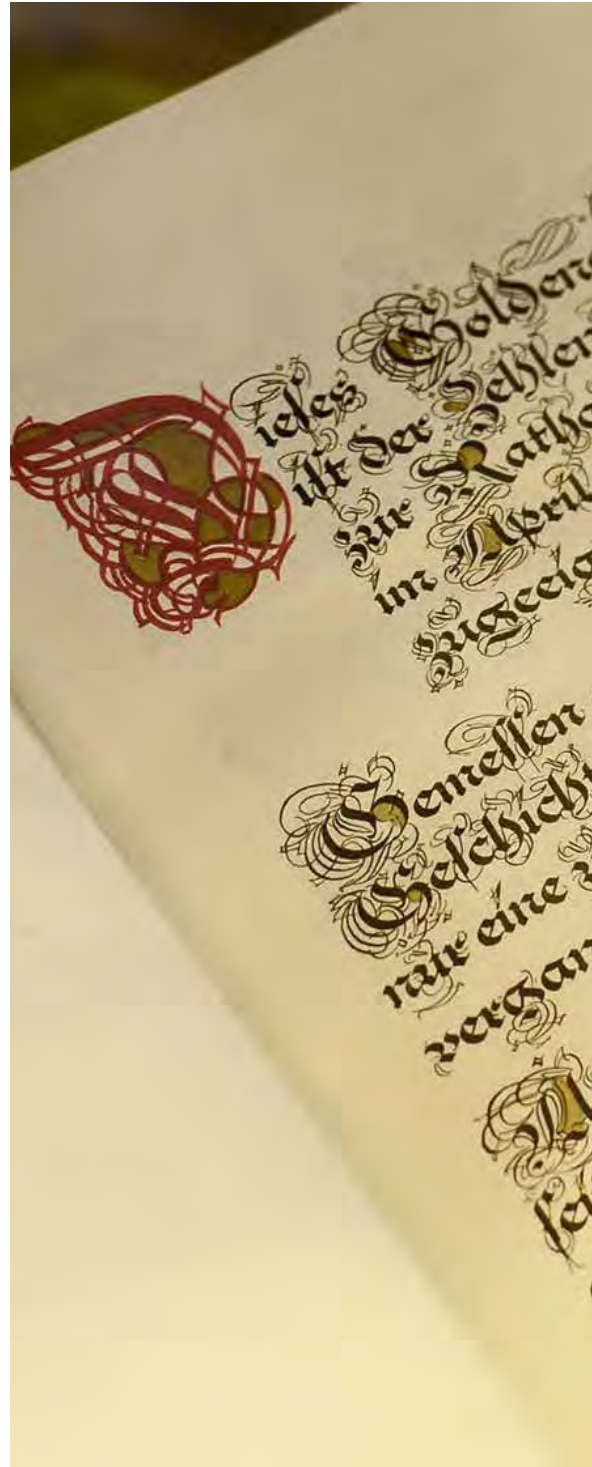 Dieses Golden
ist der
zur Ratha
im April
zugeeig
Gemessen
Geschicht
nur eine
vergan
sei